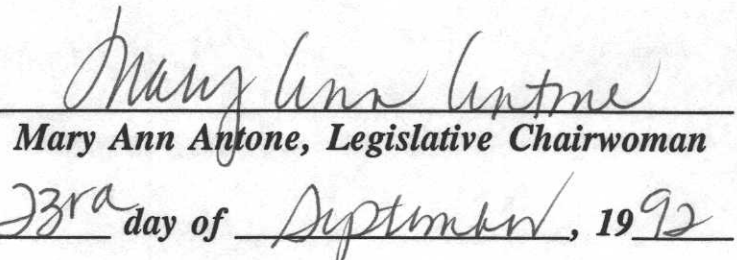 Mary Ann Antone
Mary Ann Antone, Legislative Chairwoman
23rd day of September, 1992